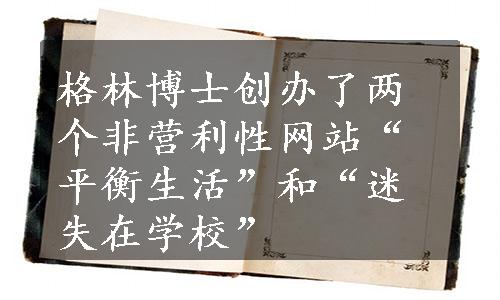 格林博士创办了两
个非营利性网站“
平衡生活”和“迷
失在学校”